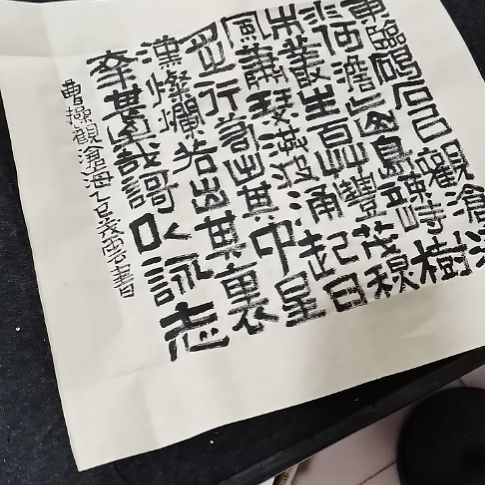 東臨碣石㠯觀滄海
水何澹〻山島竦峙樹
木叢生百艸豐茂秋
風蕭瑟洪波涌起日
月之行若出其中星
漢燦爛若出其裏
幸甚至哉謌以詠志
曹操觀滄海乙巳茂雲書